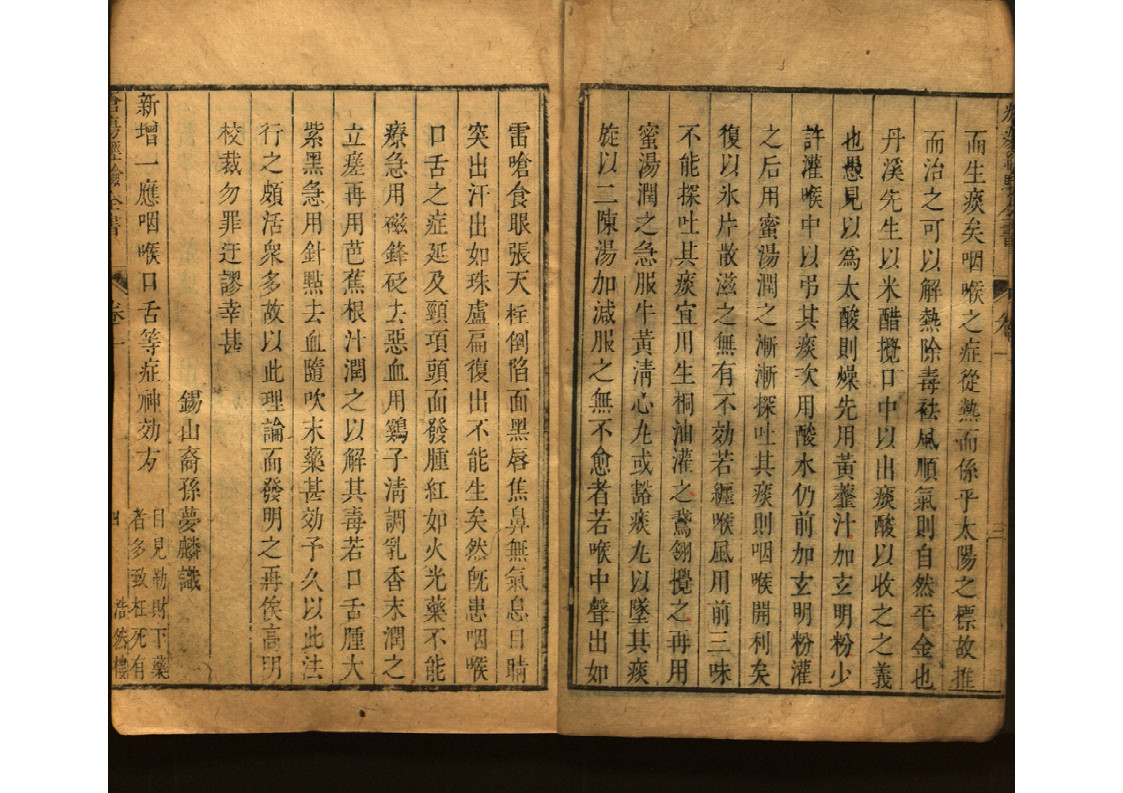 而生痰矣咽喉之症從熱而係乎太陽之標故推
而治之可以解熱除毒袪風順氣則自然平金也
丹溪先生以米醋攪口中以出痰酸以收之之義
也愚見以爲太酸則燥先用黃虀汁加玄明粉少
許灌喉中以弔其痰次用酸水仍前加玄明粉灌
之后用蜜湯潤之漸漸探吐其痰則咽喉開利矣
復以氷片散滋之無有不効若纏喉風用前三味
不能探吐其痰宜用生桐油灌之鵞翎攪之再用
蜜湯潤之急服牛黃清心丸或豁痰丸以墜其痰
旋以二陳湯加減服之無不愈者若喉中聲出如
雷嗆食眼張天柱倒陷面黑唇焦鼻無氣息目睛
突出汗出如珠盧扁復出不能生矣然旣患咽喉
口舌之症延及頸項頭面發腫紅如火光藥不能
療急用磁鋒砭去惡血用鷄子清調乳香末潤之
立瘥再用芭蕉根汁潤之以解其毒若口舌腫大
紫黑急用針點去血隨吹末藥甚効予久以此法
行之頗活衆多故以此理論而發明之再俟高明
校裁勿罪迂謬幸甚
錫山裔孫夢麟識
新增一應咽喉口舌等症神効方
目見勒財下藥
者多致枉死有
卷一
四
浩然樓
三